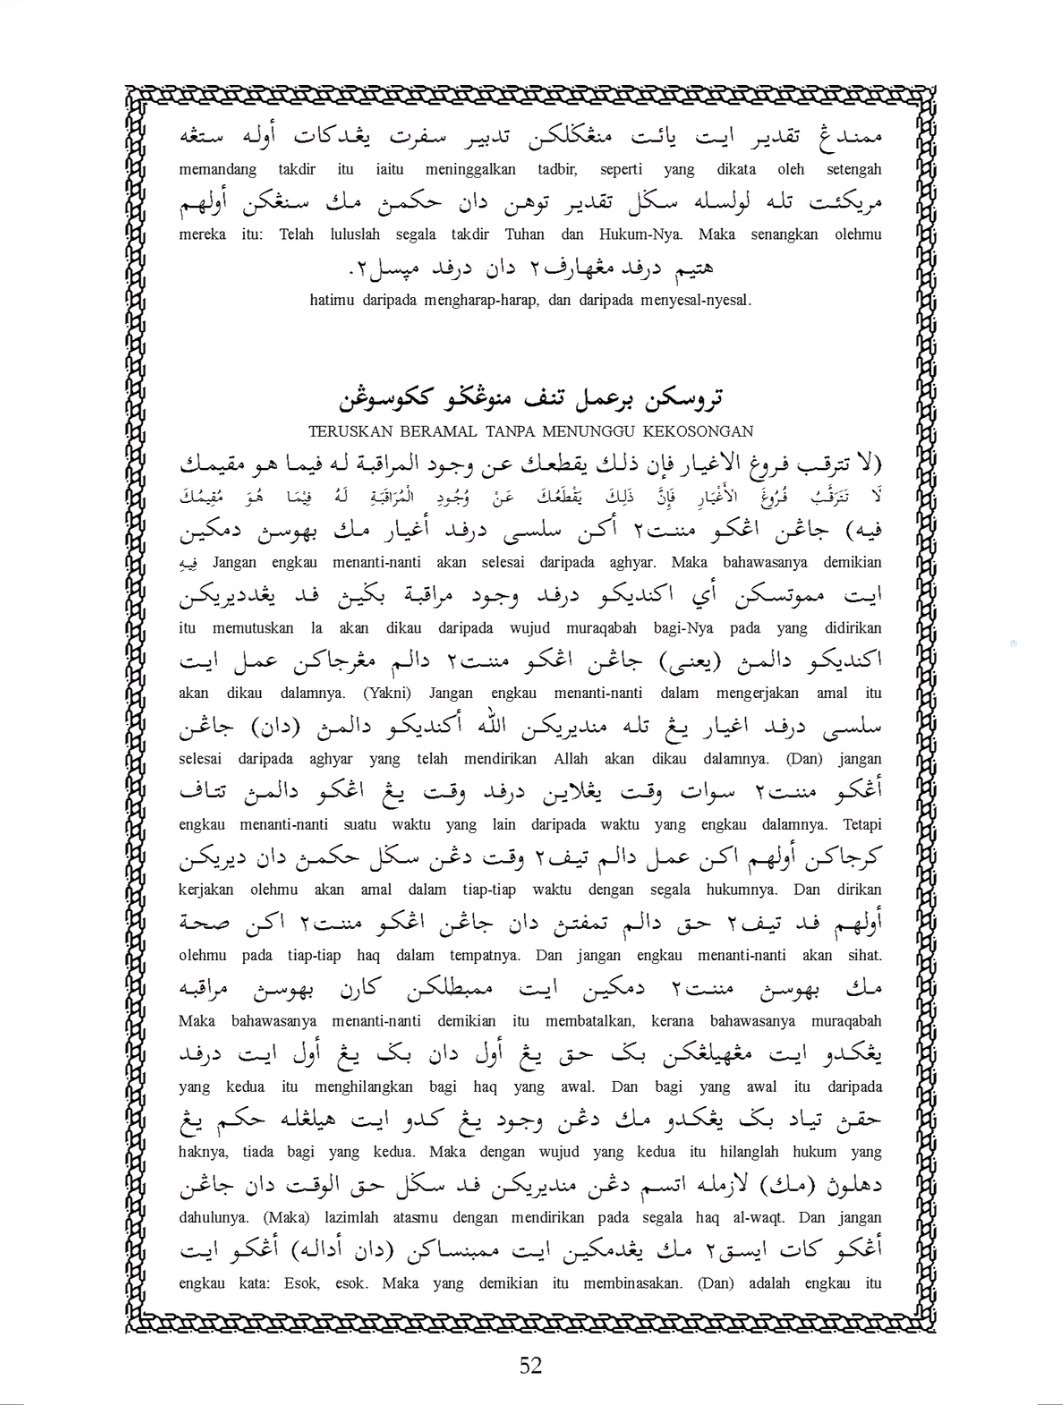 ممندڠ تقدير ايت يائت منڠݢلكن تدبير سفرت يڠدكات أوله ستڠه
memandang takdir itu iaitu meninggalkan tadbir, seperti yang dikata oleh setengah
مريكئت تله لولسله سݢل تقدير توهن دان حكمڽ مك سنڠكن أولهم
mereka itu: Telah luluslah segala takdir Tuhan dan Hukum-Nya. Maka senangkan olehmu
هتيم درفد مڠهارف٢ دان درفد مڽسل٢.
hatimu daripada mengharap-harap, dan daripada menyesal-nyesal.
تروسكن برعمل تنف منوڠݢو ككوسوڠن
TERUSKAN BERAMAL TANPA MENUNGGU KEKOSONGAN
(لا تترقب فروغ الاغيار فإن ذلك يقطعك عن وجود المراقبة له فيما هو مقيمك
لَا تَتَرَقَّبْ فُرُوْغَ الأَغْيَارِ فَإِنَّ ذَلِكَ يَقْطَعُكَ عَنْ وُجُودِ الْمُرَاقَبَةِ لَهُ فِيْمَا هُوَ مُقِيمُكَ
فيه) جاڠن اڠكو مننت٢ أكن سلسى درفد أغيار مك بهوسڽ دمكين
فِيهِ Jangan engkau menanti-nanti akan selesai daripada aghyar. Maka bahawasanya demikian
ايت مموتسكن أي اكنديكو درفد وجود مراقبة بݢيڽ فد يڠدديريكن
itu memutuskan Ia akan dikau daripada wujud muraqabah bagi-Nya pada yang didirikan
اكنديكو دالمڽ (يعنى) جاڠن اڠكو مننت٢ دالم مڠرجاكن عمل ايت
akan dikau dalamnya. (Yakni) Jangan engkau menanti-nanti dalam mengerjakan amal itu
سلسى درفد اغيار يڠ تله منديريكن الله أكنديكو دالمڽ (دان) جاڠن
selesai daripada aghyar yang telah mendirikan Allah akan dikau dalamnya. (Dan) jangan
أڠكو مننت٢ سوات وقت يڠلاين درفد وقت يڠ اڠكو دالمڽ تتاف
engkau menanti-nanti suatu waktu yang lain daripada waktu yang engkau dalamnya. Tetapi
كرجاكن أولهم اكن عمل دالم تيف٢ وقت دڠن سݢل حكمڽ دان ديريكن
kerjakan olehmu akan amal dalam tiap-tiap waktu dengan segala hukumnya. Dan dirikan
أولهم فد تيف٢ حق دالم تمفتڽ دان جاڠن اڠكو مننت٢ اكن صحة
olehmu pada tiap-tiap haq dalam tempatnya. Dan jangan engkau menanti-nanti akan sihat.
مك بهوسڽ مننت٢ دمكين ايت ممبطلكن كارن بهوسڽ مراقبه
Maka bahawasanya menanti-nanti demikian itu membatalkan, kerana bahawasanya muraqabah
يڠكدو ايت مڠهيلڠكن بݢ حق يڠ أول دان بݢ يڠ أول ايت درفد
yang kedua itu menghilangkan bagi haq yang awal. Dan bagi yang awal itu daripada
حقڽ تياد بݢ يڠكدو مك دڠن وجود يڠ كدو ايت هيلڠله حكم يڠ
haknya, tiada bagi yang kedua. Maka dengan wujud yang kedua itu hilanglah hukum yang
دهلوڽ (مك) لازمله اتسم دڠن منديريكن فد سݢل حق الوقت دان جاڠن
dahulunya. (Maka) lazimlah atasmu dengan mendirikan pada segala haq al-waqt. Dan jangan
أڠكو كات ايسق٢ مك يڠدمكين ايت ممبنساكن (دان أداله) أڠكو ايت
engkau kata: Esok, esok. Maka yang demikian itu membinasakan. (Dan) adalah engkau itu
52